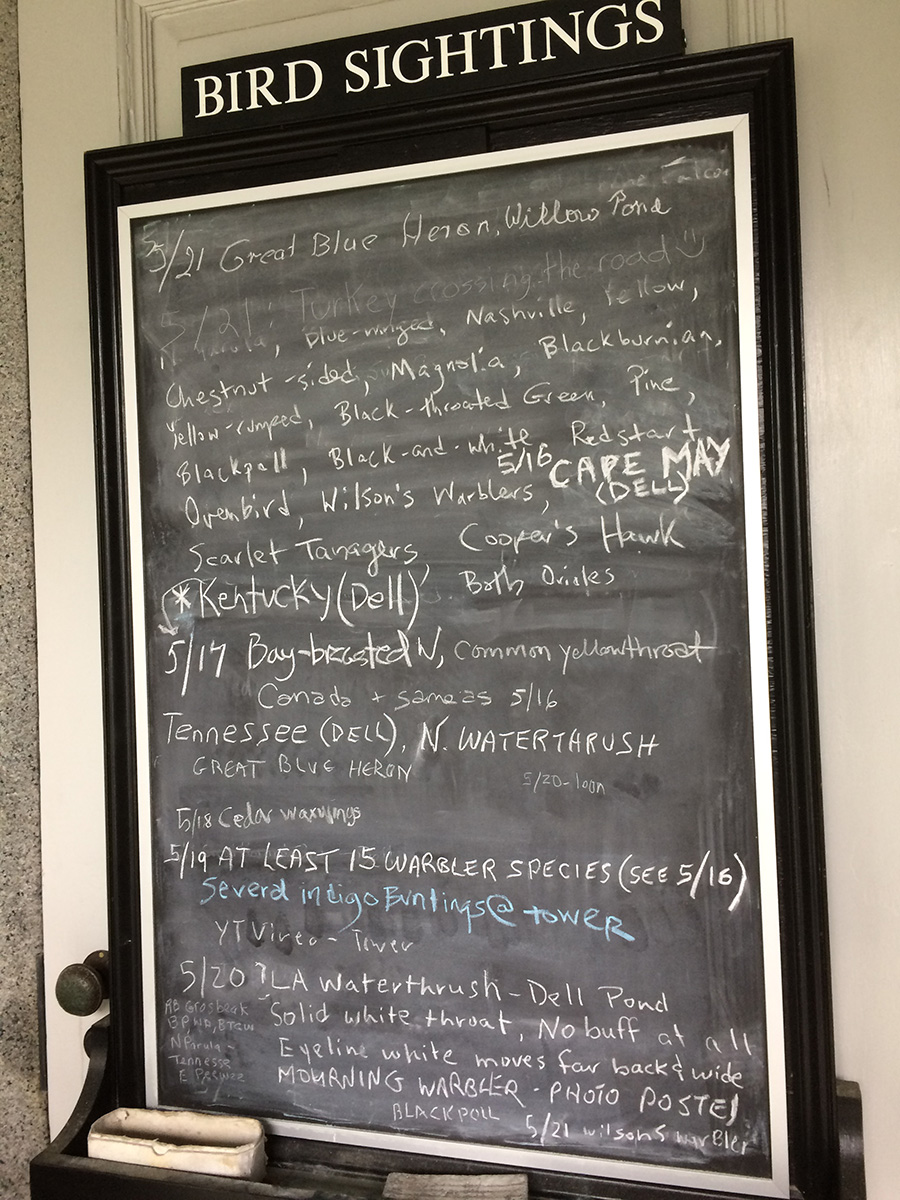 BIRD SIGHTINGS
5/21 Great Blue Heron, Willow Pond
5/21: Turkey crossing the road
N. Parula, Blue-winged, Nashville, Yellow,
Chestnut-sided, Magnolia, Blackburnian,
Yellow-rumped, Black-throated Green, Pine,
Blackpoll, Black-and-white, Redstart
5/16 CAPE MAY
(DELL)
Ovenbird, Wilson's Warblers,
Scarlet Tanagers, Cooper's Hawk
*Kentucky (Dell) Both Orioles
5/17 Bay-breasted W, Common yellowthroat
Canada + same as 5/16
Tennessee (DELL), N. WATERTHRUSH
GREAT BLUE HERON
5/20-loon
5/18 Cedar waxwings
5/19 AT LEAST 15 WARBLER SPECIES (SEE 5/16)
Several indigo Buntings @ tower
YT Vireo - Tower
5/20 ? LA Waterthrush - Dell Pond
Solid white throat, No buff at all
Eyeline white moves far back & wide
MOURNING WARBLER - PHOTO POSTED
BLACKPOLL
5/21 wilsons warbler
RB Grosbeak
N Parula -
Tennesse
E Peewee